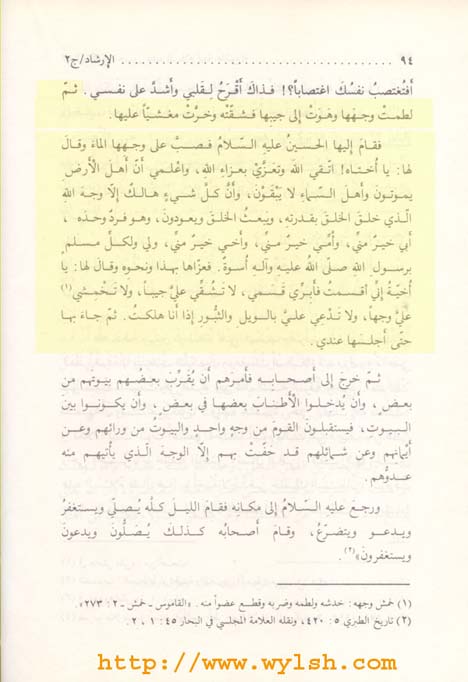 ٩٤ ........................................ الإرشاد/ج٢
أفتغتصبُ نفسُكَ اغتصاباً؟! فذاكَ أقْرَحُ لِقلبي وأشدُّ على نفسي. ثمّ
لطمتْ وجهَها وهَوَتْ إلى جيبِها فشقّتْه وخرَّتْ مغشيّاً عليها.
فقامَ إِليها الحسينُ عليهِ السّلامُ فصبَّ على وجهِها الماءَ وقالَ
لها: يا أُختاه! اتّقي اللهَ وتعَزَّيْ بعزاءِ اللهِ، واعْلمي أنّ أَهلَ الأرضِ
يموتونَ وأَهلَ السّماءِ لا يَبْقَوْنَ، وأَنّ كلَّ شيءٍ هالكٌ إلّا وجهَ اللهِ
الّذي خلقَ الخلقَ بقدرتِه، ويَبعثُ الخلقَ ويعودونَ، وهو فردٌ وحدَه،
أبي خيرٌ منِّي، وأُمِّي خيرٌ منِّي، وأَخي خيرٌ منِّي، ولي ولكلِّ مسلمٍ
برسولِ اللهِ صلّى اللهُ عليهِ وآلهِ أُسوةٌ. فعزّاها بهذا ونحوِه وقالَ لها: يا
أُخيّةُ إِنِّي أقسمتُ فأَبِرِّي قَسَمي، لا تَشُقِّي عليَّ جيباً، ولا تَخْمشي(١)
عليَّ وجهاً، ولا تَدْعِي عليَّ بالويلِ والثُّبورِ إذا أنا هلكتُ. ثمّ جاءَ بها
حتّى أجلسَها عندي.
ثمّ خرجَ إِلى أَصحابِه فأمرَهم أن يُقَرِّبَ بعضُهم بيوتَهم من
بعضٍ، وأن يُدخلوا الأطنابَ بعضها في بعضٍ، وأن يكونوا بينَ
البيوتِ، فيستقبلونَ القومَ من وجهٍ واحدٍ والبيوتُ من ورائهم وعن
أيْمانِهم وعن شمائلِهم قد حَفّتْ بهم إلّا الوجهَ الّذي يأتيهم منه
عدوُّهم.
ورجعَ عليهِ السّلامُ إلى مكانِه فقامَ الليلَ كلَّه يُصلِّي ويستغفرُ
ويدعو ويتضرّعُ، وقامَ أَصحابُه كذلكَ يُصَلُّونَ ويدعونَ
ويستغفرونَ»(٢).
(١) خمش وجهه: خدشه ولطمه وضربه وقطع عضواً منه. «القاموس ـ خمش ـ ٢: ٢٧٣».
(٢) تاريخ الطبري ٥: ٤٢٠، ونقله العلامة المجلسي في البحار ٤٥: ١، ٢.
http://www.wylsh.com